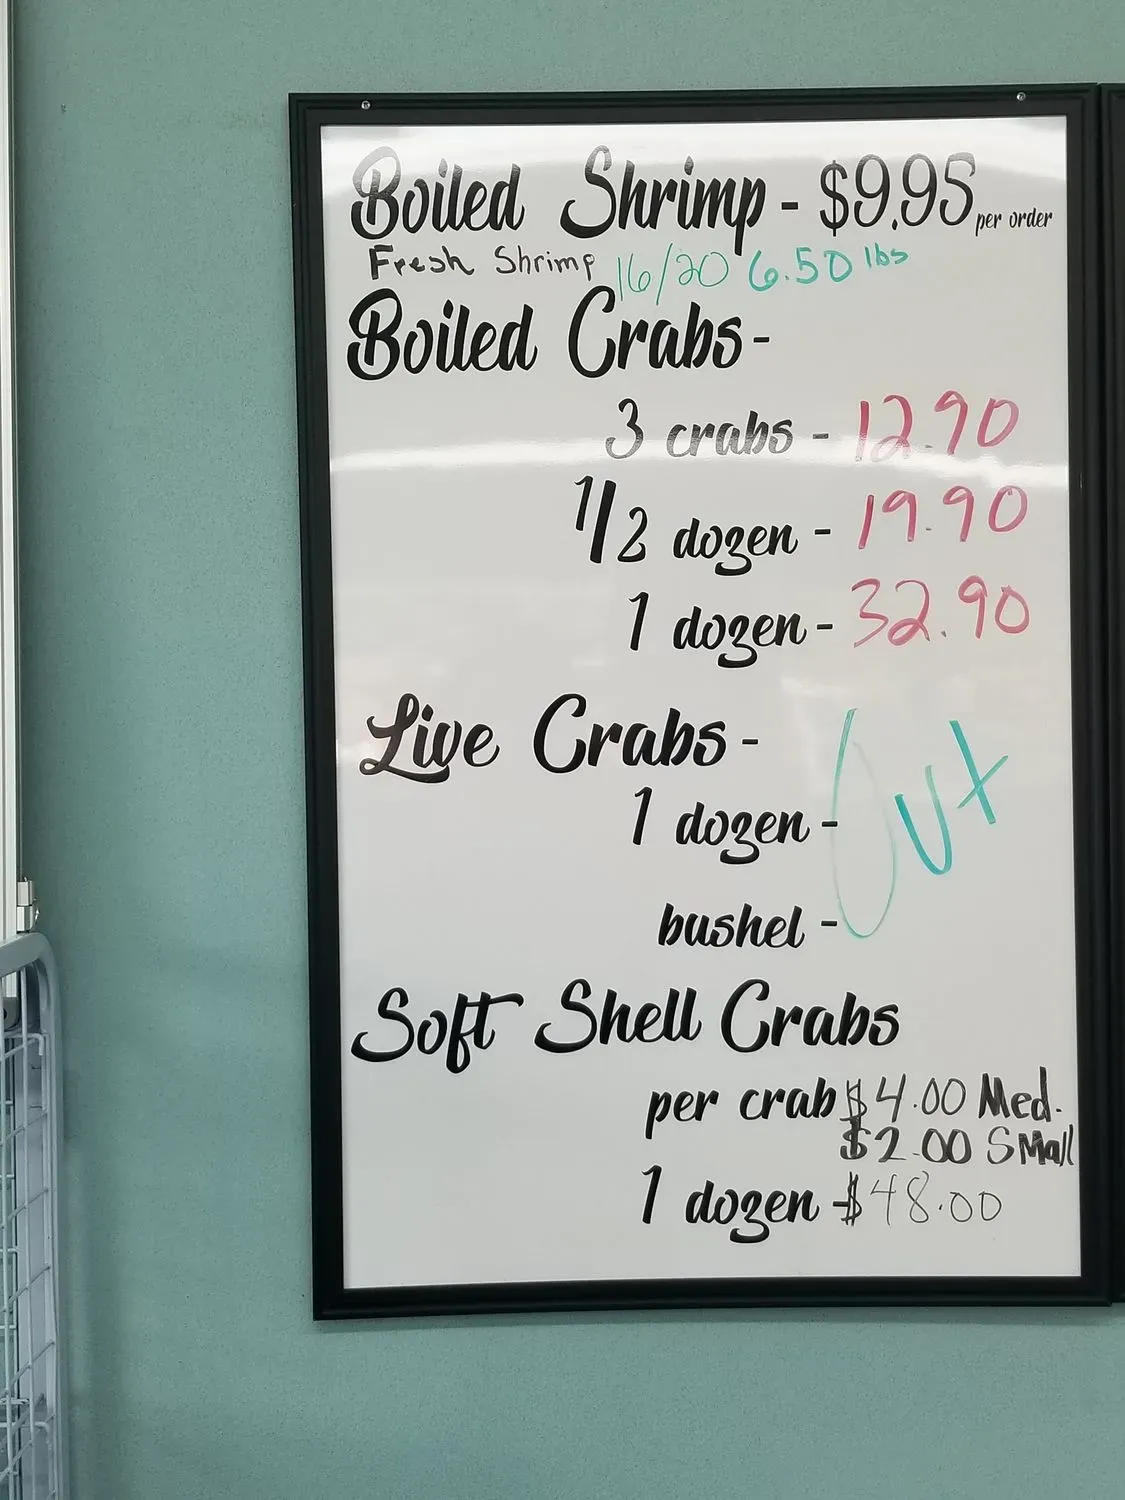 Boiled Shrimp - $9.95 per order
Fresh Shrimp 16/20 6.50 lbs
Boiled Crabs -
3 crabs - 12.90
1/2 dozen - 19.90
1 dozen - 32.90
Live Crabs -
1 dozen - Out
bushel -
Soft Shell Crabs
per crab $4.00 Med.
$2.00 Small
1 dozen - $48.00